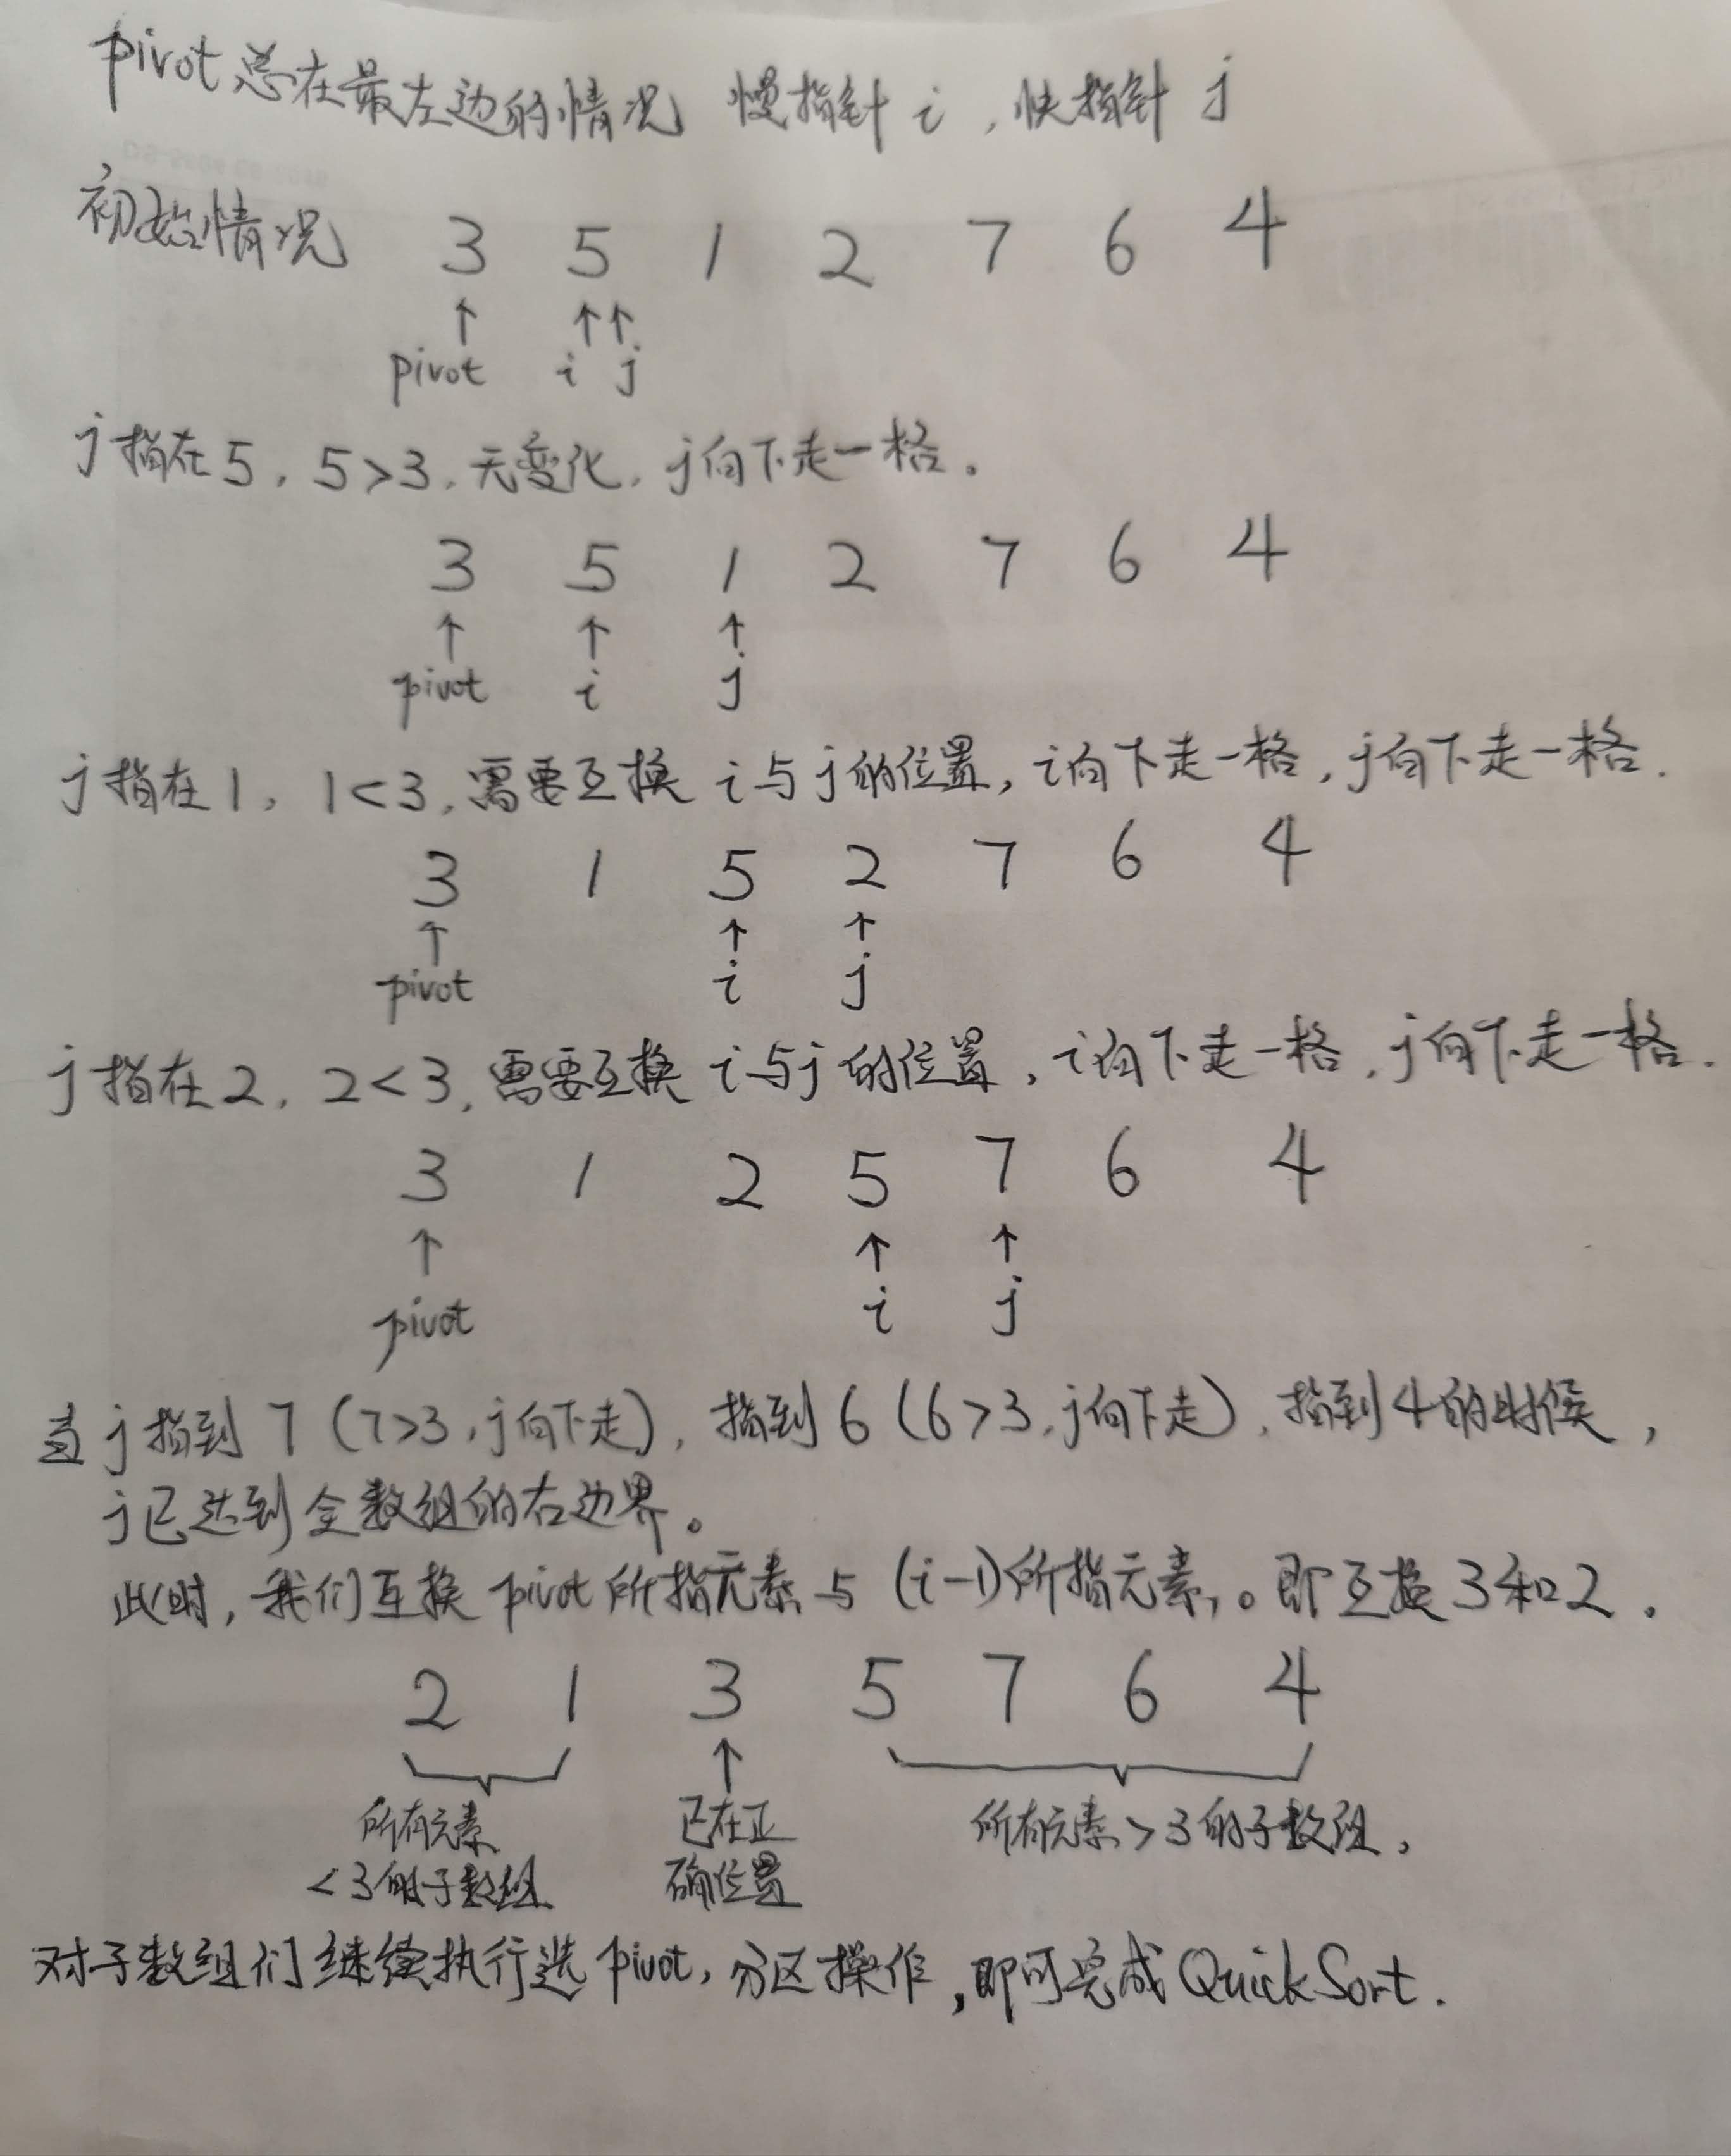 pivot总在最左边的情况 慢指针 i，快指针 j
初始情况 3 5 1 2 7 6 4
↑ ↑↑
pivot i j
j指在5，5>3，无变化，j向下走一格。
3 5 1 2 7 6 4
↑ ↑ ↑
pivot i j
j指在1，1<3，需要互换 i与j的位置，i向下走一格，j向下走一格.
3 1 5 2 7 6 4
↑ ↑ ↑
pivot i j
j指在2，2<3，需要互换 i与j的位置，i向下走一格，j向下走一格.
3 1 2 5 7 6 4
↑ ↑ ↑
pivot i j
当j指到7（7>3，j向下走），指到6（6>3，j向下走），指到4的时候，
j已达到全数组的右边界。
此时，我们互换pivot所指元素与（i-1）所指元素。即互换3和2.
2 1 3 5 7 6 4
↑
所有元素 已在正 所有元素>3的子数组，
<3的子数组 确位置
对子数组们继续执行选pivot，分区操作，即可完成QuickSort.